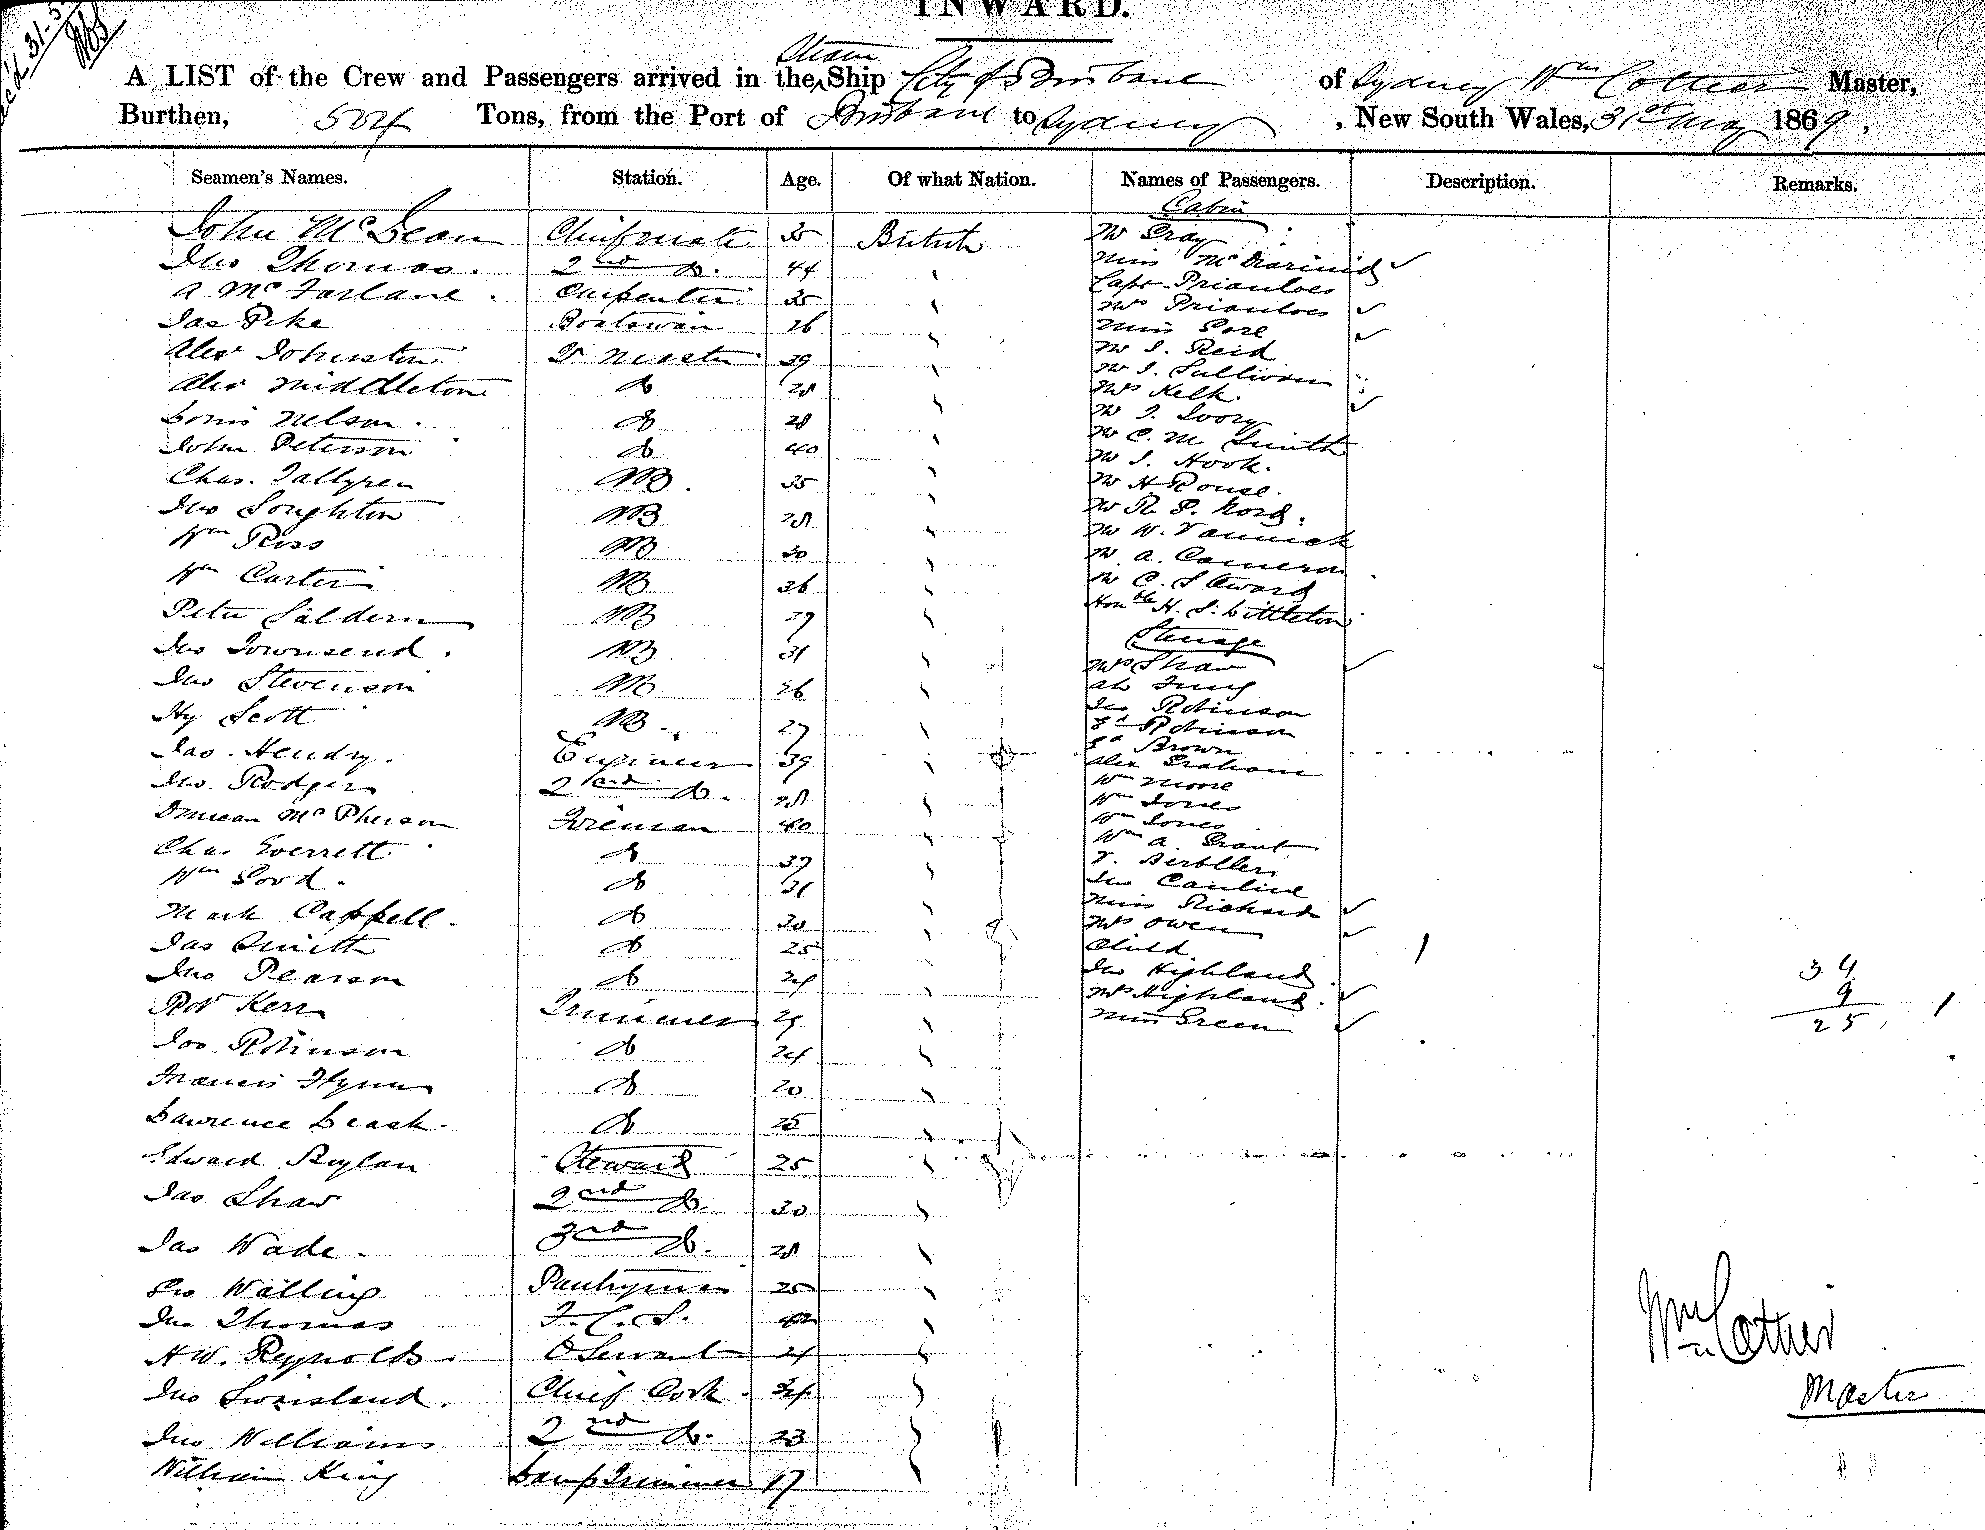 INWARD.
A LIST of the Crew and Passengers arrived in the Steam Ship City of Brisbane of Sydney Wm Cottier Master,
Burthen, 504 Tons, from the Port of Brisbane to Sydney, New South Wales, 31st May 1869.
Seamen's Names. Station. Age. Of what Nation. Names of Passengers. Description. Remarks.
Cabin
John McLean Chief mate 35 British
Jno Thomas. 2nd Do. 44
A McFarlane. Carpenter 35
Jas Pike Boatswain 26
Alexr Johnston 39
Alexr Middleton Do 28
Louis Nelson. Do 28
John Peterson Do 40
Chas. AB. 35
Jno Loughton AB 28
Wm Ross AB 30
Wm Carter AB 36
Peter AB 29
Jno Townsend. AB 31
Jno Stevenson AB 26
Hy Scott AB. 27
Jas. Hendry. Engineer 39
Jno Rodger 2nd Do. 28
Duncan McPherson Fireman 40
Chas Everrett Do 39
Wm Do 31
Mark Cappell. Do 30
Jas Smith Do 25
Jno Pearson Do 24
Robt Kerr Trimmer 29
Jos Robinson Do 24
Francis Flynn Do 20
Lawrence Leask. Do 25
Edward Boylan Steward 25
Jas Shaw 2nd Do. 30
Jas Wade. 3rd Do. 28
Geo Walling Pantryman 25
Jno Thomas F.C.S.
H W. Reynolds. O Servant 24
Jno Chief Cook. 34
Jno Williams 2nd Do. 23
William King Lamp Trimmer 17
Mr Gray
Miss McDiarmid
Capt
Mrs
Miss
Mr J. Reid
Mr J. Sullivan
Mrs Kelk.
Mr J. Ivory
Mr C. M Smith
Mr J. Hook.
Mr H Rouse.
Mr R. P.
Mr W.
Mr A. Cameron
Mr C. S Award
Honble H. S. Littleton
Steerage
Mrs Shaw
Ah
Jno Robinson
Ed Robinson
Ed Brown
Alex Graham
Wm Moore
Wm Jones
Wm Jones
Wm A. Grant
T.
Jno
Miss Richards
Mrs Owen
Child.
Jno Highland
Mrs Highland.
Miss Green
34
9
25
Wm Cottier
Master